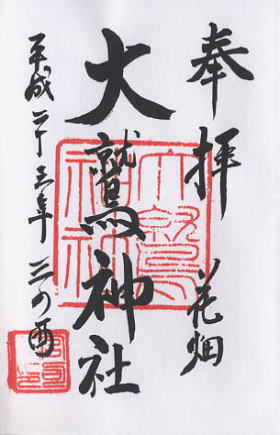 奉拝
花畑
大鷲神社
平成二十三年 三の酉